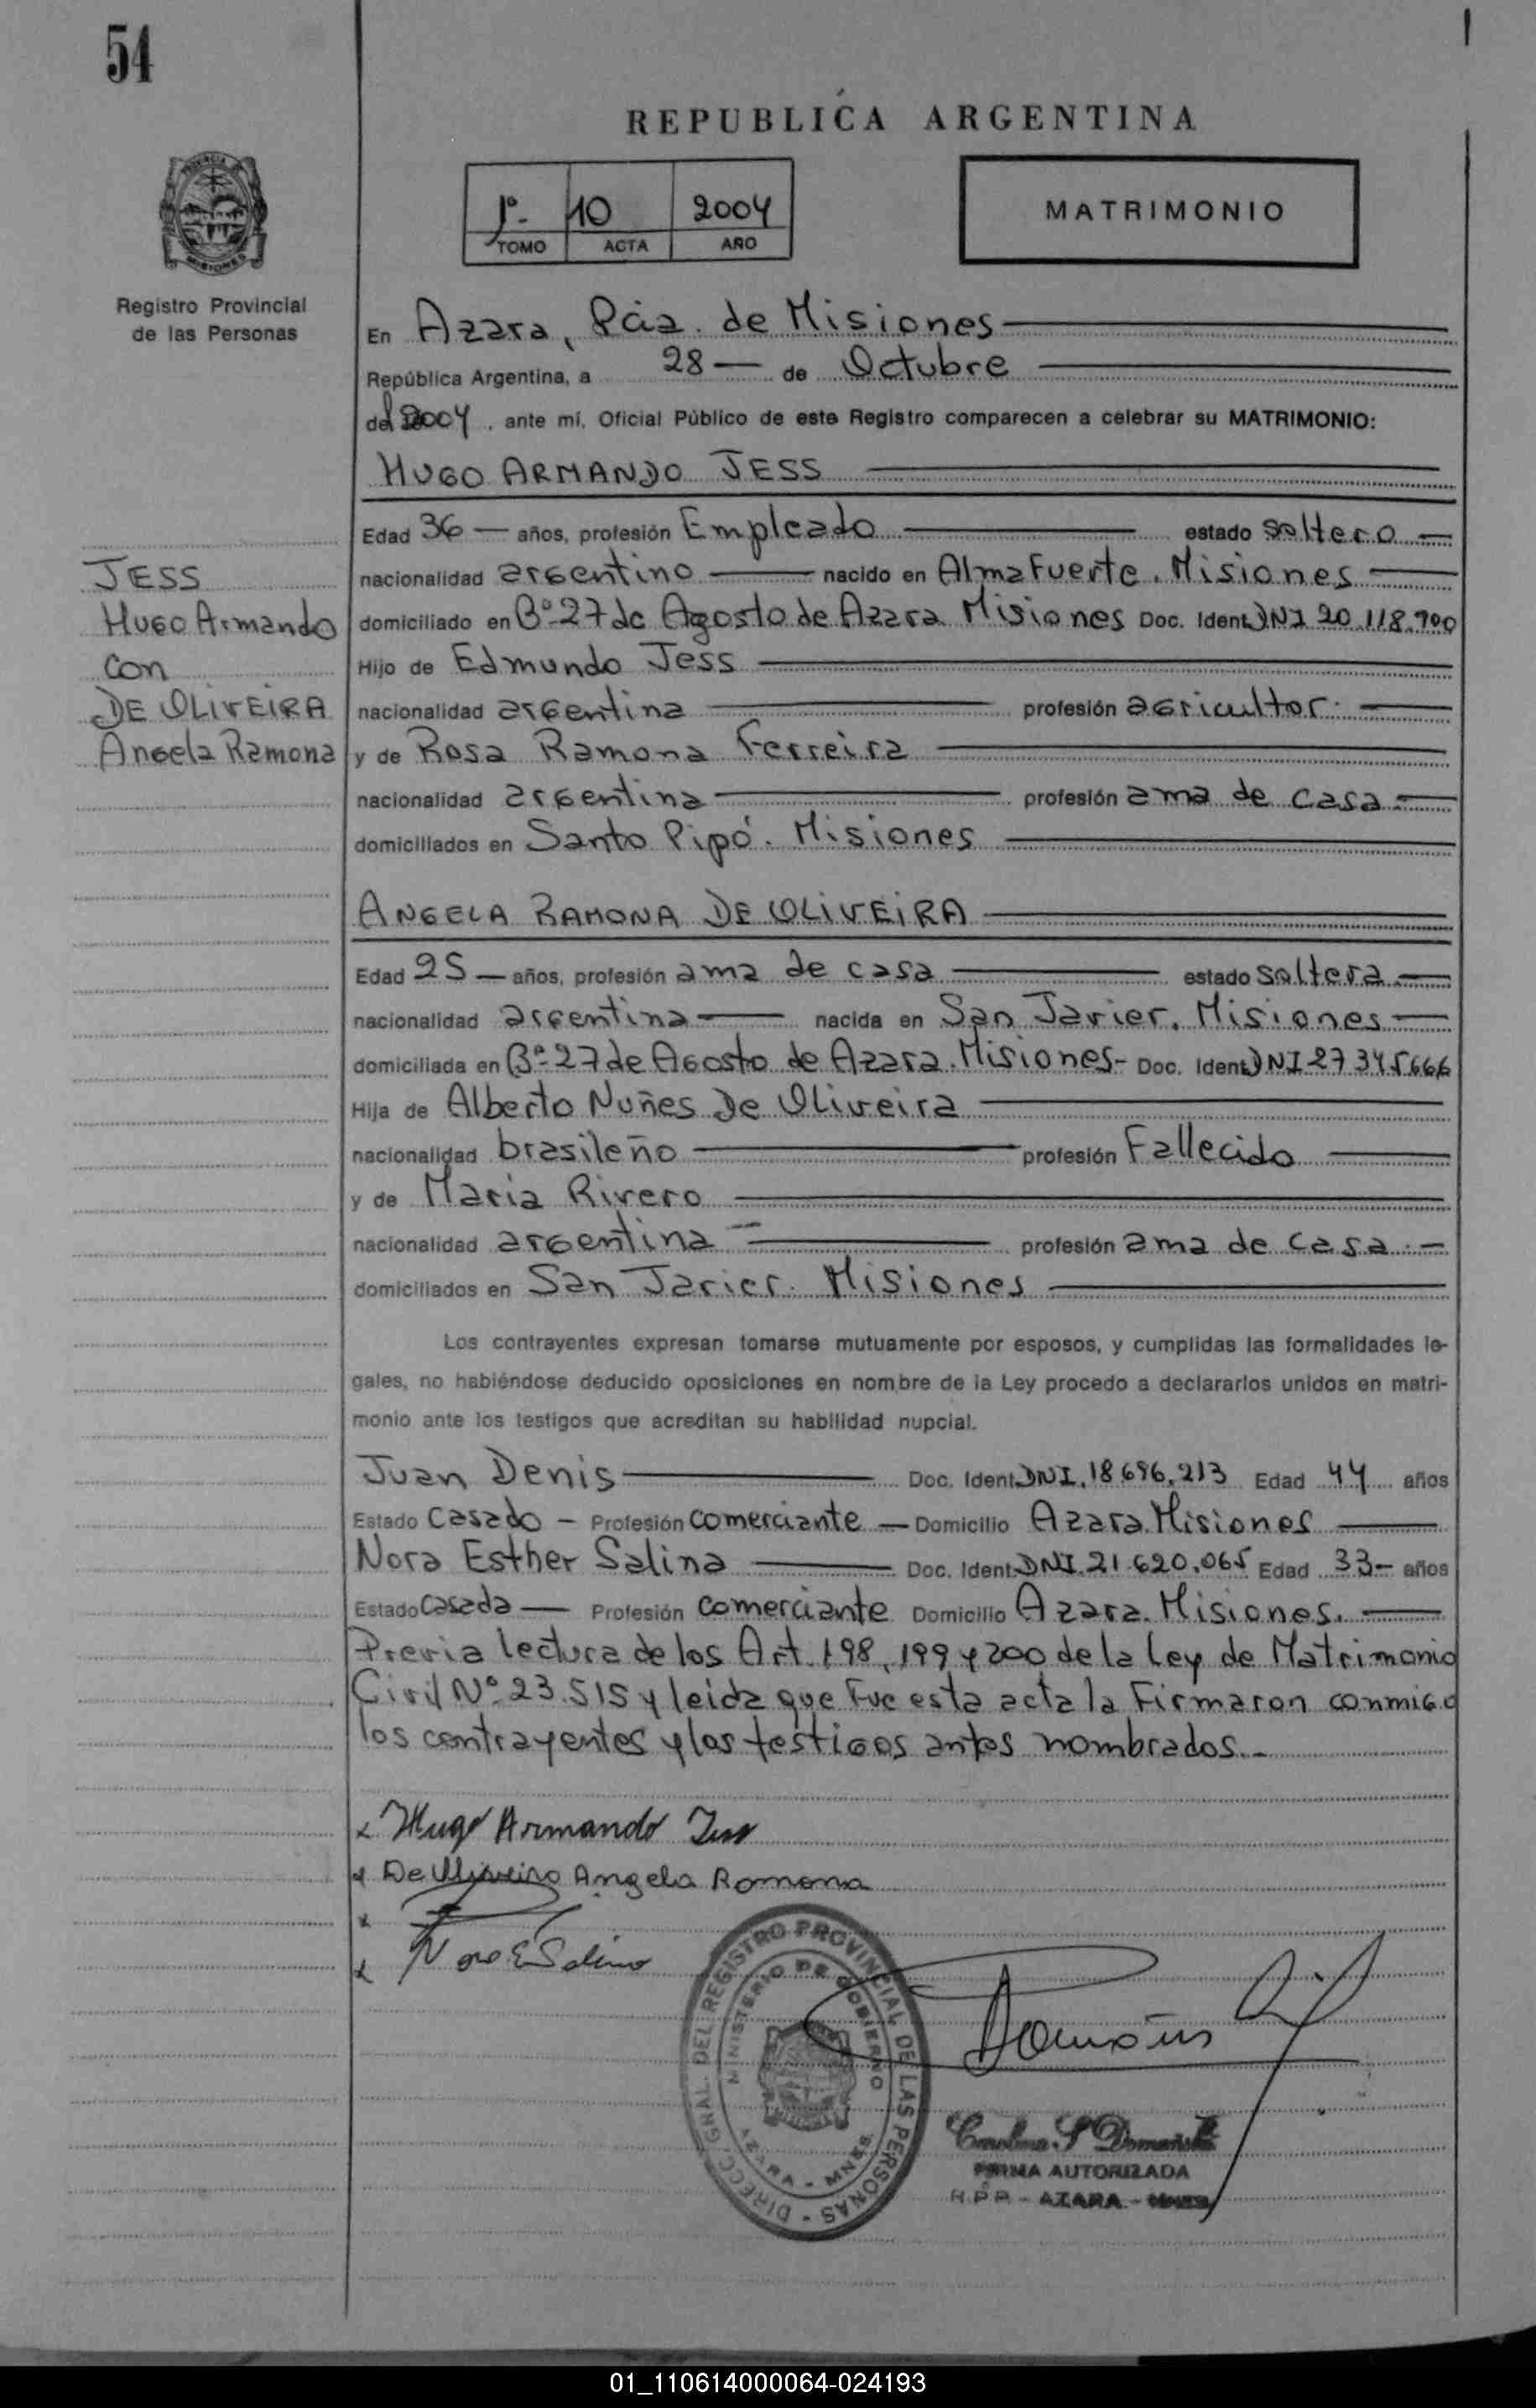 54
REPUBLICA ARGENTINA
1º- 10 2004
TOMO ACTA AÑO
MATRIMONIO
PROVINCIA
MISIONES
Registro Provincial
de las Personas
En Azara, Pcia. de Misiones
República Argentina, a 28 — de Octubre
del 2004, ante mí, Oficial Público de este Registro comparecen a celebrar su MATRIMONIO:
HUGO ARMANDO JESS
Edad 36 — años, profesión Empleado estado soltero —
nacionalidad argentino — nacido en Alma Fuerte. Misiones —
domiciliado en Bº-27 de Agosto de Azara Misiones Doc. Ident. DNI 20.118.900
Hijo de Edmundo Jess
nacionalidad argentina profesión agricultor. —
y de Rosa Ramona Ferreira
nacionalidad argentina profesión ama de casa. —
domiciliados en Santo Pipó. Misiones
JESS
Hugo Armando
con
DE OLIVEIRA
Angela Ramona
ANGELA RAMONA DE OLIVEIRA
Edad 25 — años, profesión ama de casa estado soltera. —
nacionalidad argentina — nacida en San Javier. Misiones —
domiciliada en Bº-27 de Agosto de Azara. Misiones- Doc. Ident. DNI 27 345666
Hija de Alberto Nuñes De Oliveira
nacionalidad brasileño profesión Fallecido
y de Maria Rivero
nacionalidad argentina — profesión ama de casa. —
domiciliados en San Javier. Misiones
Los contrayentes expresan tomarse mutuamente por esposos, y cumplidas las formalidades le-
gales, no habiéndose deducido oposiciones en nombre de la Ley procedo a declararlos unidos en matri-
monio ante los testigos que acreditan su habilidad nupcial.
Juan Denis Doc. Ident. DNI. 18.696.213 Edad 44 años
Estado Casado — Profesión comerciante — Domicilio Azara. Misiones
Nora Esther Salina Doc. Ident. DNI. 21.620.065 Edad 33- años
Estado Casada — Profesión comerciante Domicilio Azara. Misiones. —
Previa lectura de los Art. 198, 199 y 200 de la Ley de Matrimonio
Civil Nº 23.515 y leida que fue esta acta la firmaron conmigo
los contrayentes y los testigos antes nombrados.-
x Hugo Armando Jess
x De Oliveira Angela Ramona
x
x Nora E Salina
DIRECC. GRAL. DEL REGISTRO PROVINCIAL DE LAS PERSONAS
MINISTERIO DE GOBIERNO
AZARA - MNES.
Carolina S Domañski
FIRMA AUTORIZADA
R.P.P. - AZARA - MNES.
01_110614000064-024193